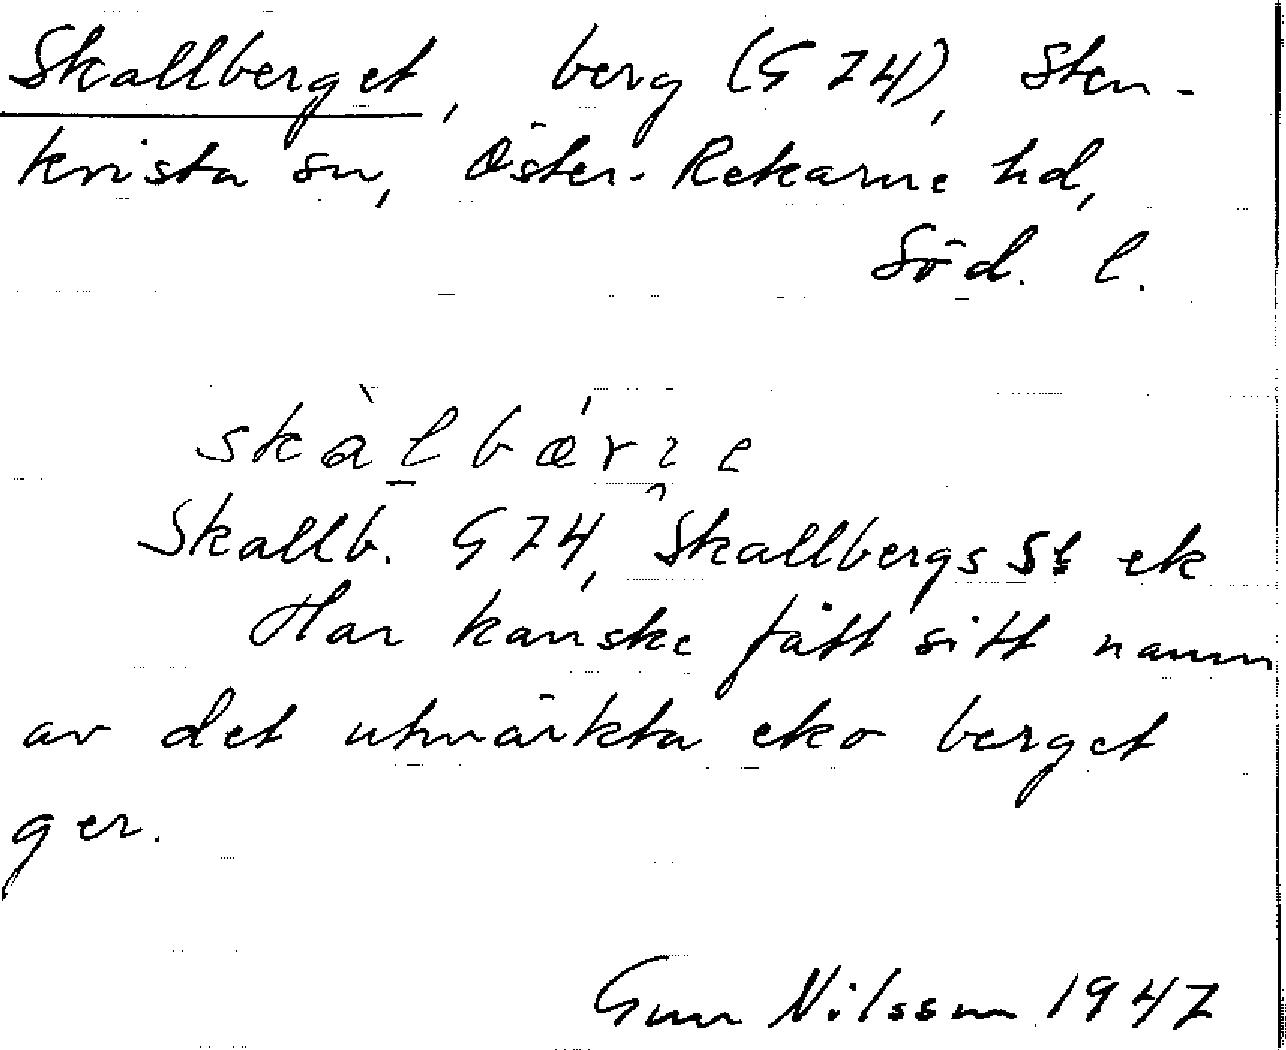 Skallberget, berg (G 74), Sten-
kvista sn, Öster-Rekarne hd,
Söd. l.
skàlbǽrɿe
Skallb. G74, Skallbergs St ek
Har kanske fått sitt namn
av det utmärkta eko berget
ger.
Gun Nilsson 1947